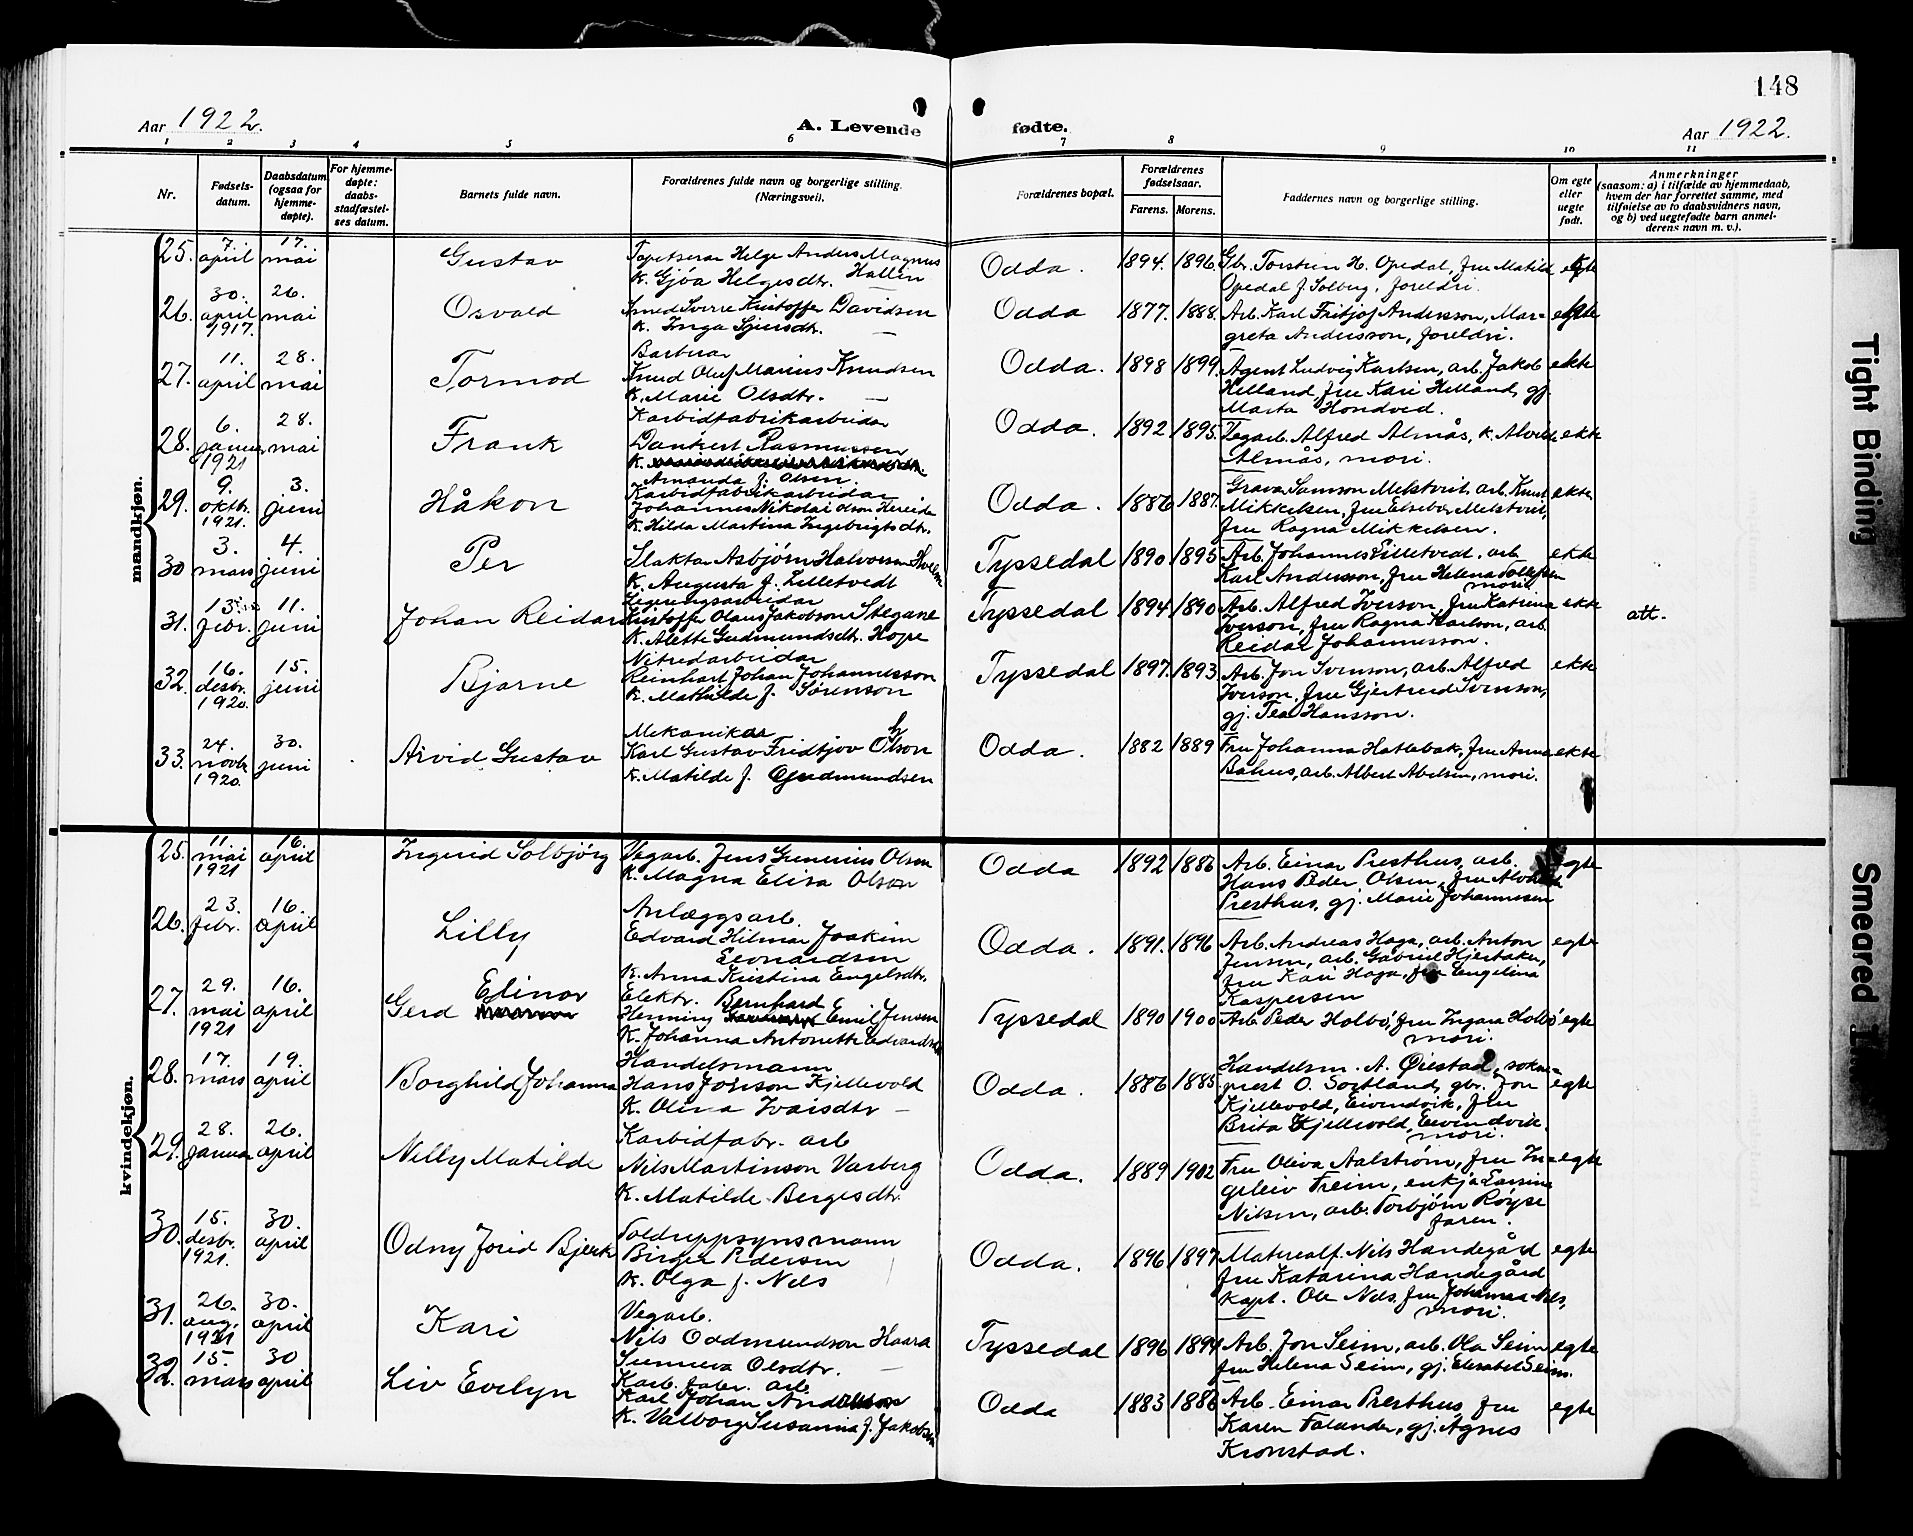 148
Aar 1922.
A. Levende
fødte.
Aar 1922.
1 2 3 4 5 6 7 8 9 10 11
Nr.
Fødsels-
datum.
Daabsdatum
(ogsaa for
hjemme-
døpte).
For hjemme-
døpte:
daabs-
stadfæstel-
ses datum.
Barnets fulde navn.
Forældrenes fulde navn og borgerlige stilling.
(Næringsvei).
Forældrenes bopæl.
Forældrenes
fødselsaar.
Farens. Morens.
Faddernes navn og borgerlige stilling.
Om egte
eller
uegte
født.
Anmerkninger
(saasom: a) i tilfælde av hjemmedaab,
hvem der har forrettet samme, med
tilføielse av to daabsvidners navn,
og b) ved uegtefødte barn anmel-
derens navn m. v.).
mandkjøn.
25. 7. april 17. mai Gustav
Tapetserar Helge Anders Magnus
K. Gjøa Helgesdtr. Hallin
Odda. 1894. 1896.
Gbr. Torstein H. Opedal, fru Matild
Opedal f. Solberg, foreldri.
egte
26. 30. april 1917. 26. mai Osvald
Smed Sverre Kristoffer Davidsen
K. Inga Sjursdtr. —
Odda 1877. 1888.
Arb. Karl Fritjof Andersson, Mar-
greta Andersson, foreldri.
egte
27. 11. april 28. mai Tormod
Barberar
Knud Oluf Marius Knudsen
K. Marie Olsdtr. —
Odda. 1898 1899.
Agent Ludvig Karlsen, arb. Jakob
Helland, fru Kari Helland, gj.
Marta Hondved.
ekte
28. 6. januar 1921 28. mai Frank
Karbidfabrikarbeidar
Dankert Rasmussen
K.
Amanda f. Olsen.
Odda. 1892 1895.
Vegarb. Alfred Almås, K. Alvilde
Almås, mori.
ekte
29. 9. oktbr. 1921. 3. juni Håkon
Karbidfabrikarbeidar
Johannes Nikolai Olson Hereide
K. Hilda Martina Ingebrigtsdtr.
Odda. 1886 1887.
Gravar Samson Melstveit, arb. Knut
Mikkelsen, fru Elsebe Melstveit,
fru Ragna Mikkelsen.
ekte
30 3. mars 4. juni Per
Slaktar Asbjørn Halvorsen Hvem
K. Augusta f. Lilletvedt
Tyssedal 1890 1895
Arb. Johannes Lilletvedt, arb.
Karl Andersson, fru Helena Tollefsen
mori.
ekte
31. 13. febr. 11. juni Johan Reidar
Legeringsarbeidar
Kristoffer Olaus Jakobson Stegane
K. Alette Gudmundsdtr. Hope
Tyssedal 1894 1890
Arb. Alfred Iverson, fru Katrina
Iverson, fru Ragna Karlson, arb.
Reidar Johannesson.
ekte
att.
32. 16. desbr. 1920. 15. juni Bjarne
Nitredarbeidar
Reinhart Johan Johannesson
K. Mathilde f. Sørenson
Tyssedal 1897. 1893.
Arb. Jon Svenson, arb. Alfred
Iverson, fru Gjertrud Svenson,
gj. Tea Hansson.
ekte
33. 24. novbr. 1920. 30. juni Arvid Gustav
Mekanikar
Karl Gustav Fridtjov Olson
K. Matilde f. Gudmundsen
Odda. 1882 1889
Fru Johanna Hattebak, fru Anna
Bahus, arb. Albert Abelsen, mori.
ekte
kvindekjøn.
25. 11. mai 1921 16. april Ingerid Solbjørg
Vegarb. Jens Gunerius Olsen
K. Magna Elisa Olson
Odda 1892 1886
Arb. Einar Presthus, arb.
Hans Peder Olsen, fru
Presthus, gj. Marie Johannesen
egte
26. 23. febr. 16. april Lilly
Anlæggsarb.
Edvard Hilmar Joakim
Leonardsen
K. Anna Kristina Engelsdtr.
Odda. 1891. 1896
Arb. Andreas Haga, arb. Anton
Jensen, arb. Gabriel Hjertaker,
fru Kari Haga, fru Engelina
Kaspersen
egte
27. 29. mai 1921 16. april Gerd Elinor
Elektr. Bernhard
Henning Emil Jensen
K. Johanna Antonette Edvardsdtr
Tyssedal 1890 1900
Arb. Peder Holbø, fru Ingara Holbø
mori.
egte
28. 17. mars 19. april Borghild Johanna
Handelsmann
Hans Jonson Kjellevold
K. Olina Ivarsdtr —
Odda. 1886 1885.
Handelsm. A. Øiestad, sokne-
prest O. Sortland, gbr. Jon
Kjellevold, Eivendvik, fru
Brita Kjellevold, Eivindvik.
mori.
egte
29. 28. januar 26. april Nelly Matilde
Karbidfabr. arb
Nils Martinson Varberg
K. Matilde Bergesdtr.
Odda. 1889 1902
Fru Oliva Aalstrøm, fru In-
geleiv Freim, enkja Larsine
Nilsen, arb. Torbjørn Røyse
faren.
egte
30. 15. desbr. 1921. 30. april Odny Jorid Bjerk
Toldoppsynsmann
Birger Pedersen
K. Olga f. Nels
Odda. 1896 1897
Materealf. Nils Handegård
fru Katarina Handegård
Kapt. Ole Nels, fru Johanna Nels,
mori.
egte
31. 26. aug. 1921 30. april Kari
Vegarb.
Nils Oddmundson Haara
Sunniva Olsdtr. —
Tyssedal 1896 1894
Arb. Jon Seim, arb. Ola Seim
fru Helena Seim, gj. Elisabet Seim.
egte
32. 15. mars 30 april Liv Evelyn
Karb. fabr. arb
Karl Johan Anderson
K. Valborg Susanna f. Jakobsen
Odda 1883 1886
Arb. Einar Presthus, fru
Karen Falander, gj. Agnes
Kronstad.
egte
Tight Binding
Smeared